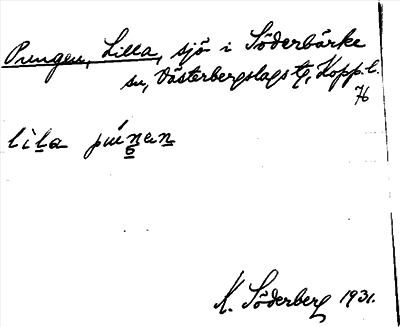 Pungen, Lilla, sjö i Söderbärke
sn, Västerbergslags tg, Kopp.l.
76
lìla
K. Söderberg 1931.